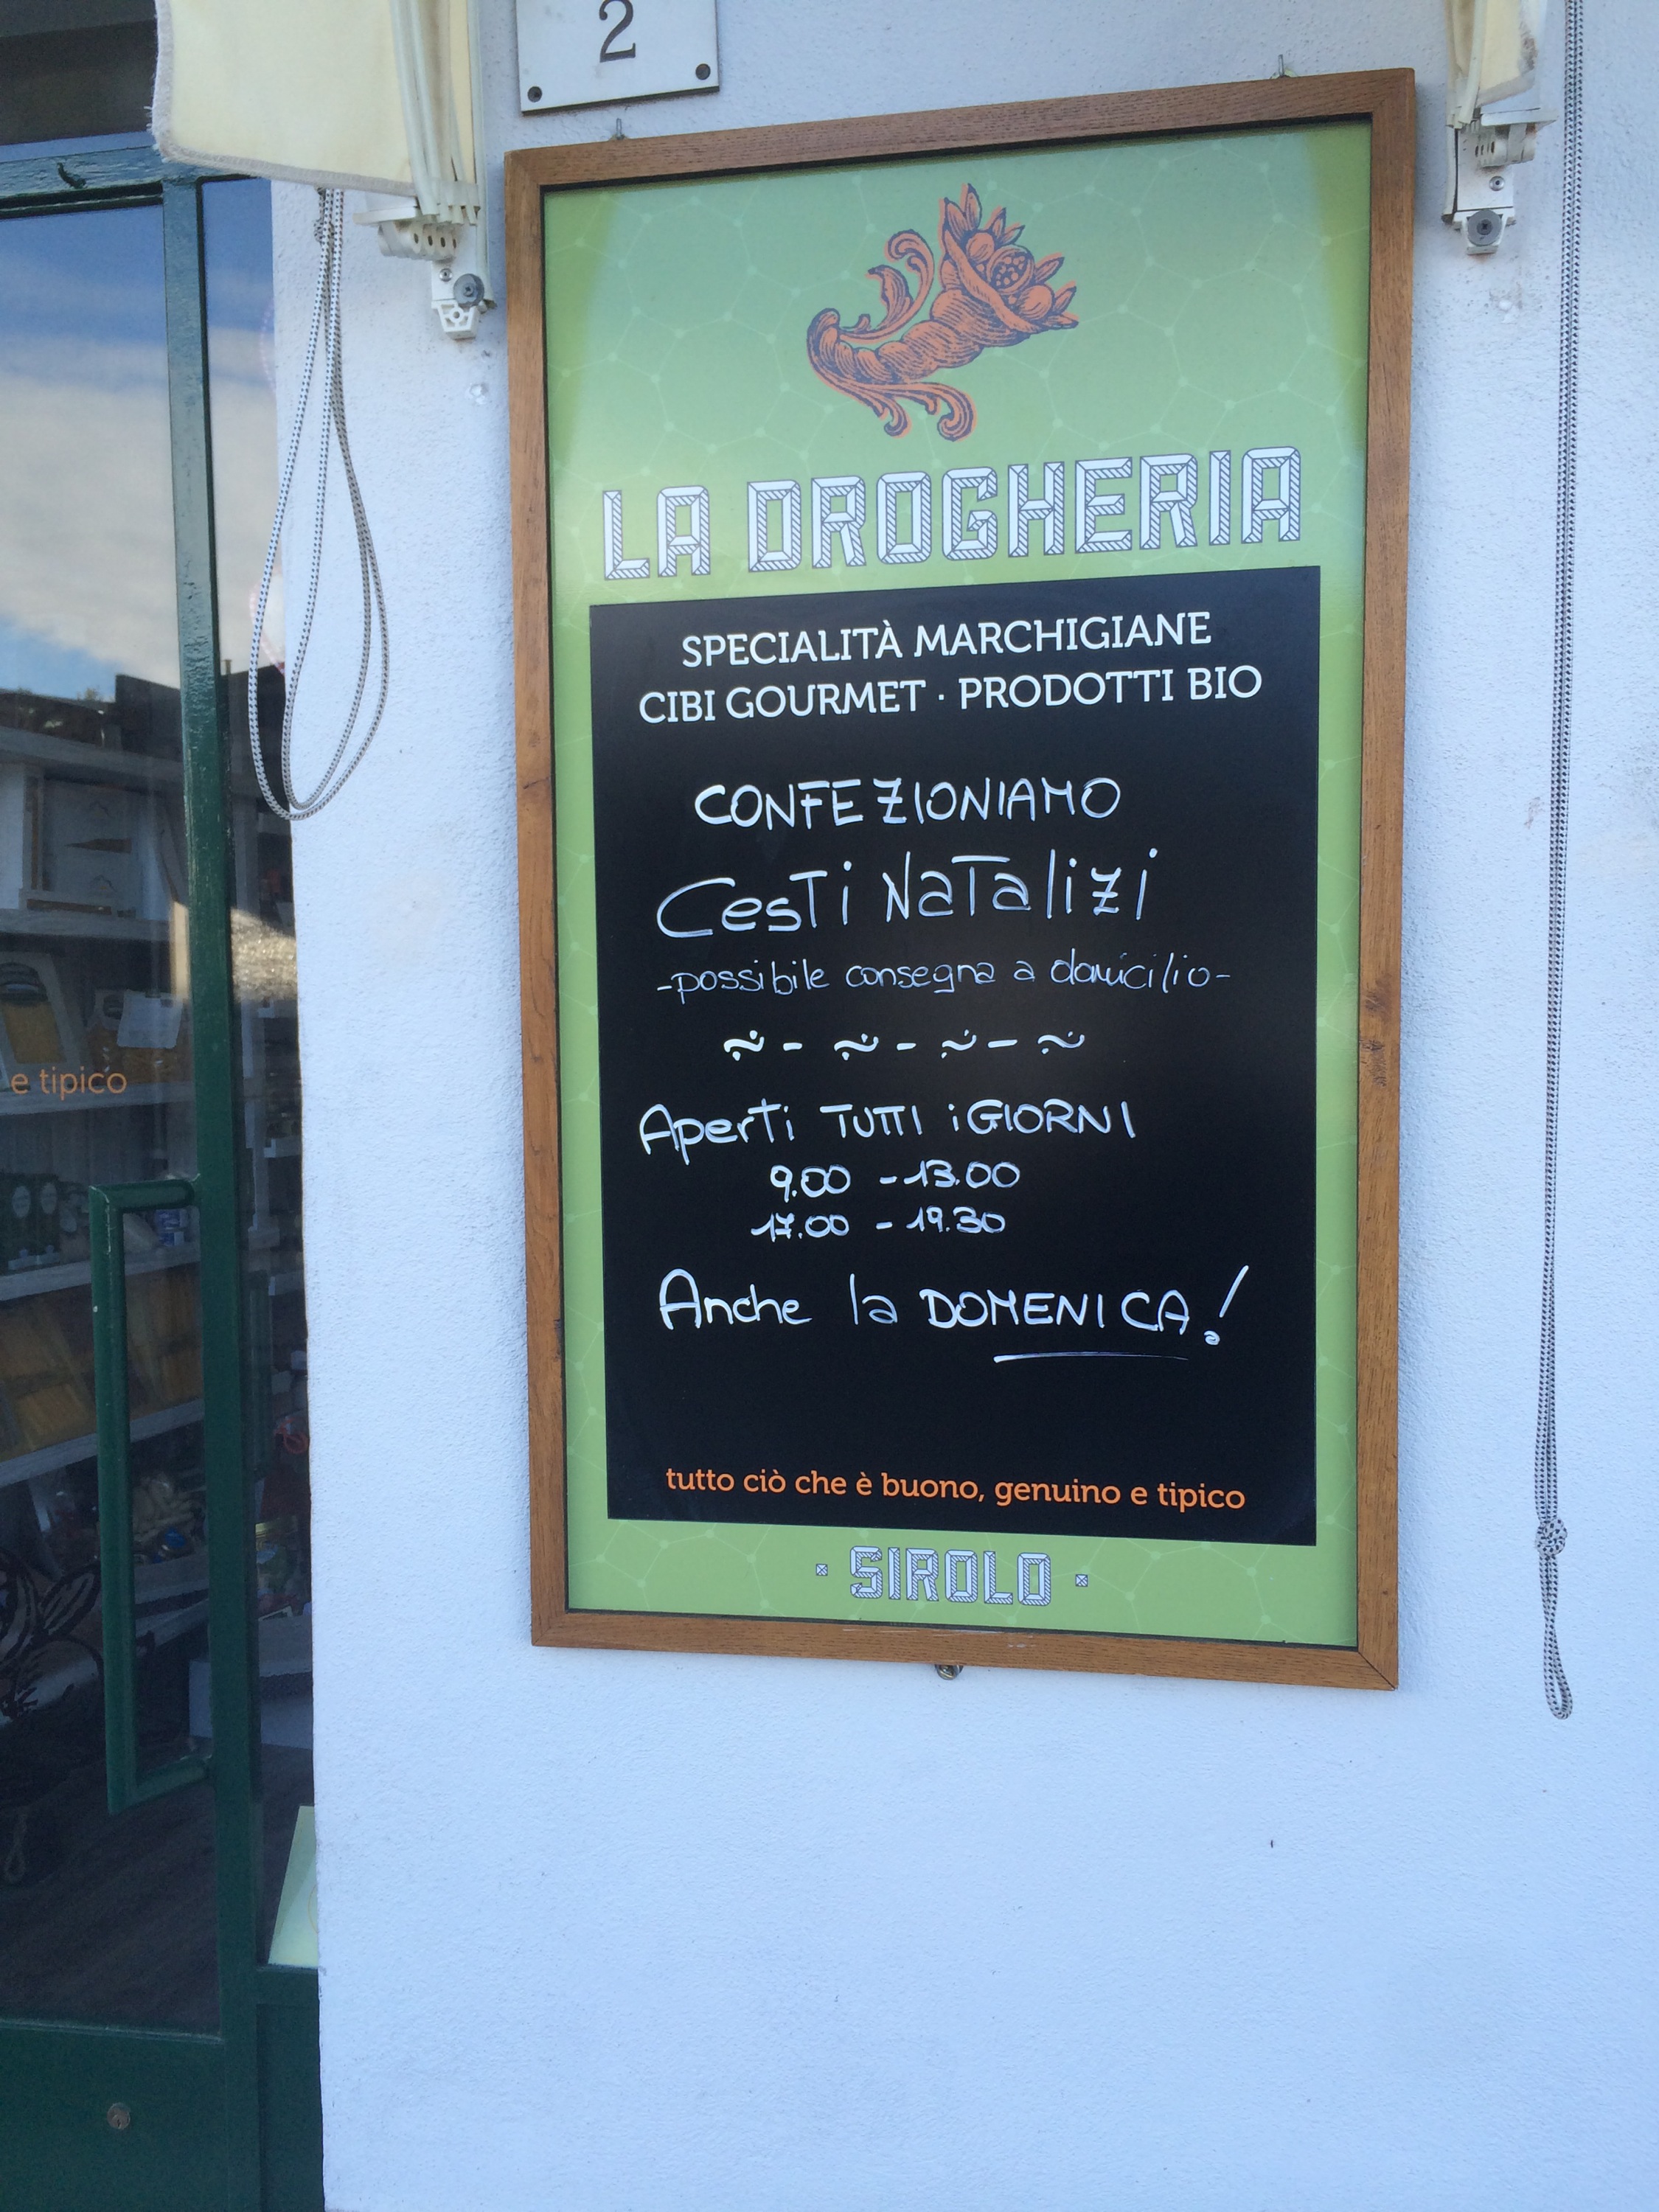 2
LA DROGHERIA
SPECIALITÀ MARCHIGIANE
CIBI GOURMET · PRODOTTI BIO
CONFEZIONIAMO
Cesti Natalizi
-possibile consegna a domicilio-
Aperti TUTTI i GIORNI
9.00 - 13.00
17.00 - 19.30
Anche la DOMENICA!
tutto ciò che è buono, genuino e tipico
· SIROLO ·
e tipico